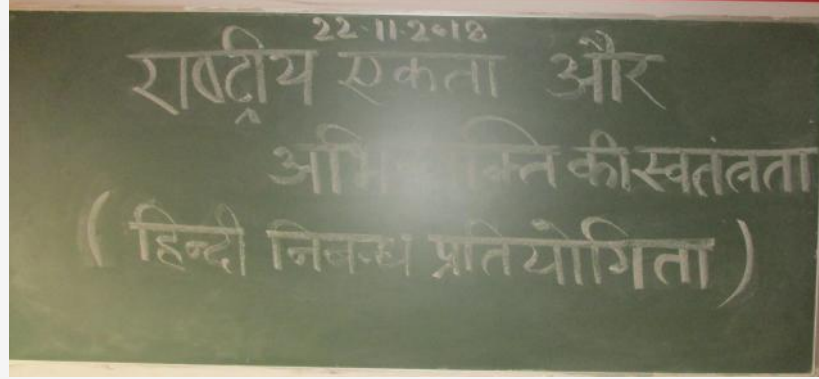 22.11.2018
राष्ट्रीय एकता और
अभिव्यक्ति की स्वतंत्रता
( हिन्दी निबन्ध प्रतियोगिता )